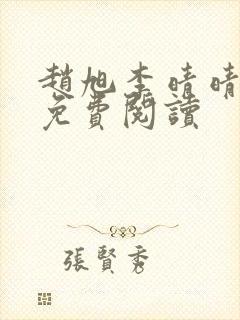 趙旭李晴晴
免費閱讀
張賢秀